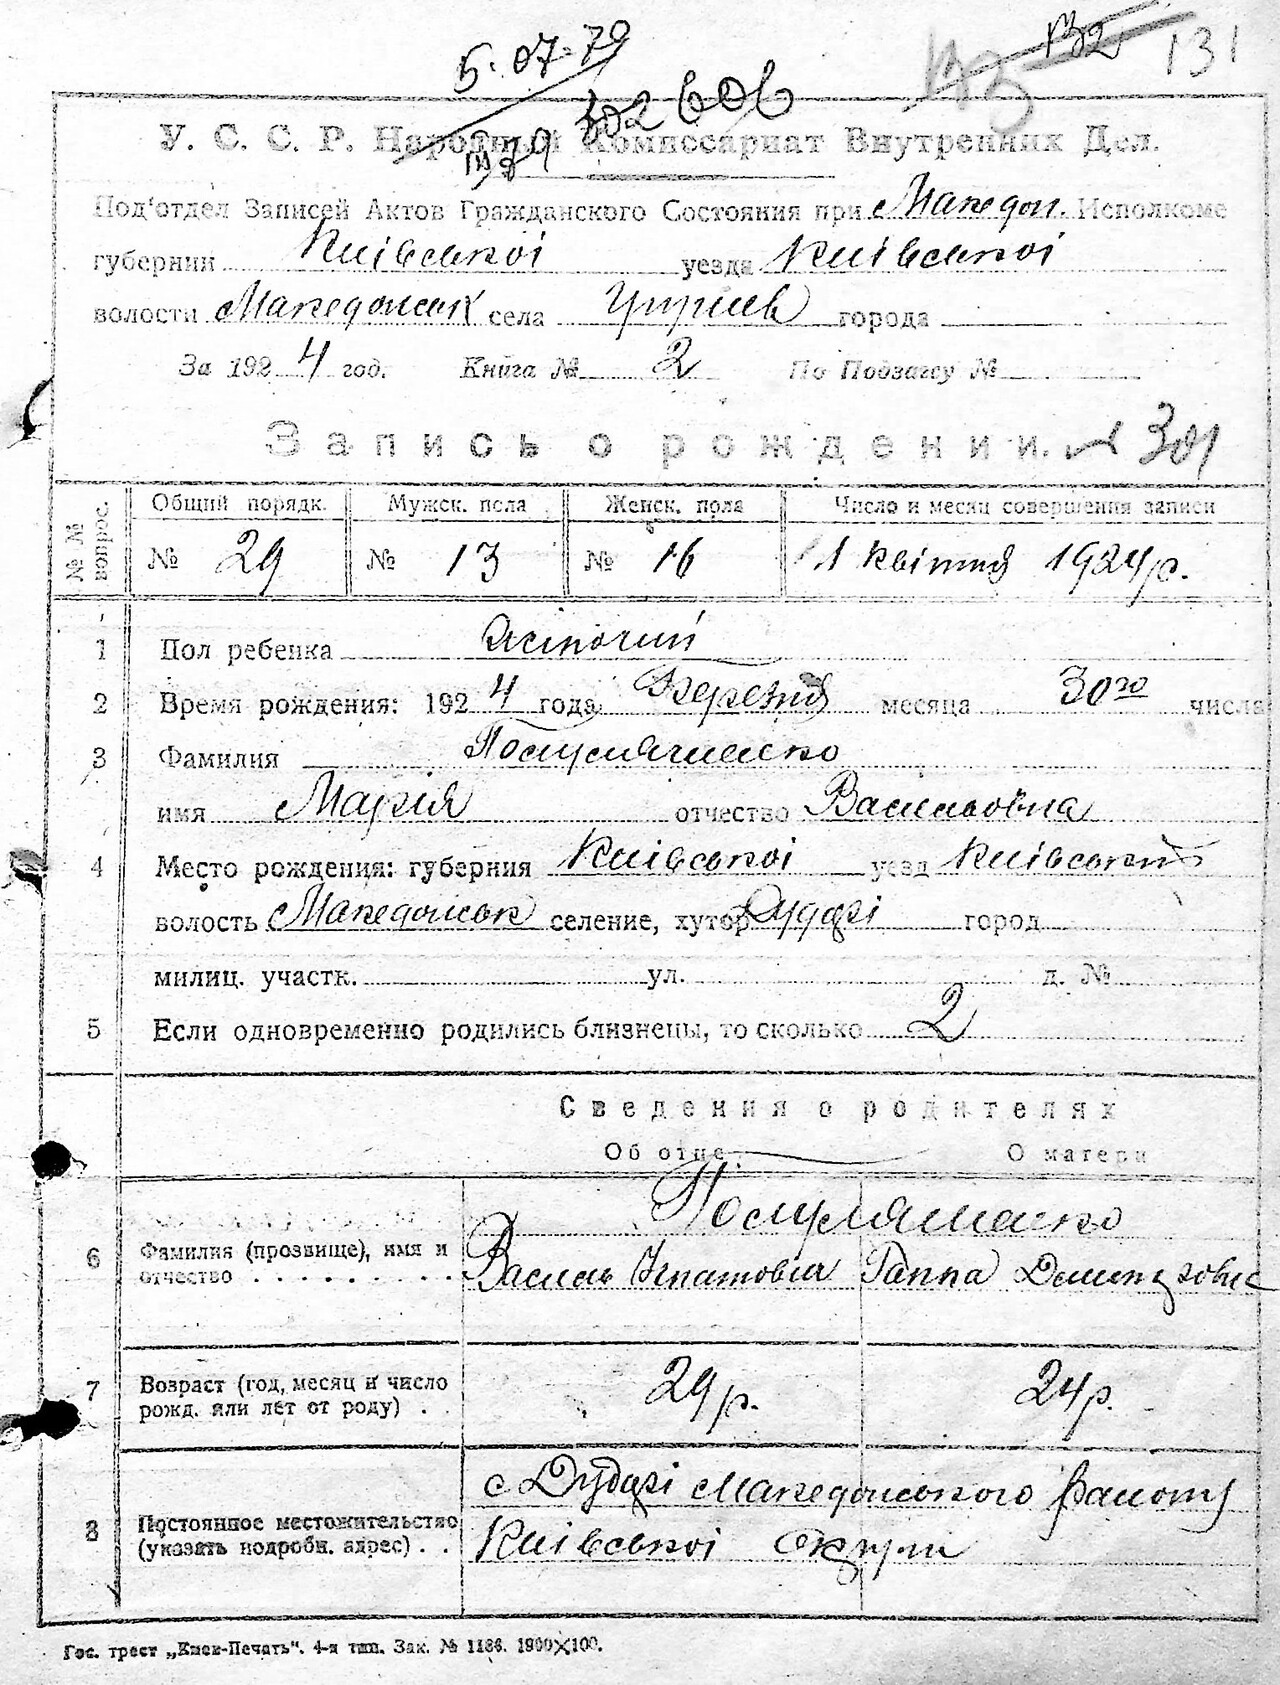 132 131
5.07.79
302606
У. С. С. Р. Народный Комиссариат Внутренних Дел.
Под'отдел Записей Актов Гражданского Состояния при Македон. Исполкоме
губернии Київської уезда Київської
волости Македонськ села города
За 1924 год. Книга № 2 По Подзагсу №
Запись о рождении. № 301
№№ вопрос. Общий порядк. Мужск. пола Женск. пола Число и месяц совершения записи
№ 29 № 13 № 16 1 квітня 1924 р.
1 Пол ребенка Жіночий
2 Время рождения: 1924 года Березня месяца 30го числа
3 Фамилия
имя Марія отчество Васильовна
4 Место рождения: губерния Київської уезд Київської
волость Македонськ селение, хутор Дударі город
милиц. участк. ул. д. №
5 Если одновременно родились близнецы, то сколько 2
Сведения о родителях
Об отце: О матери
Полулященко
6 Фамилия (прозвище), имя и
отчество Василь Ігнатович Ганна
7 Возраст (год, месяц и число
рожд. или лет от роду) 29 р. 24 р.
с Дударі Македонського району
8 Постоянное местожительство
(указать подробн. адрес) Київської Округи
Гос. трест „Киев-Печать“. 4-я тип. Зак. № 1186. 1900×100.